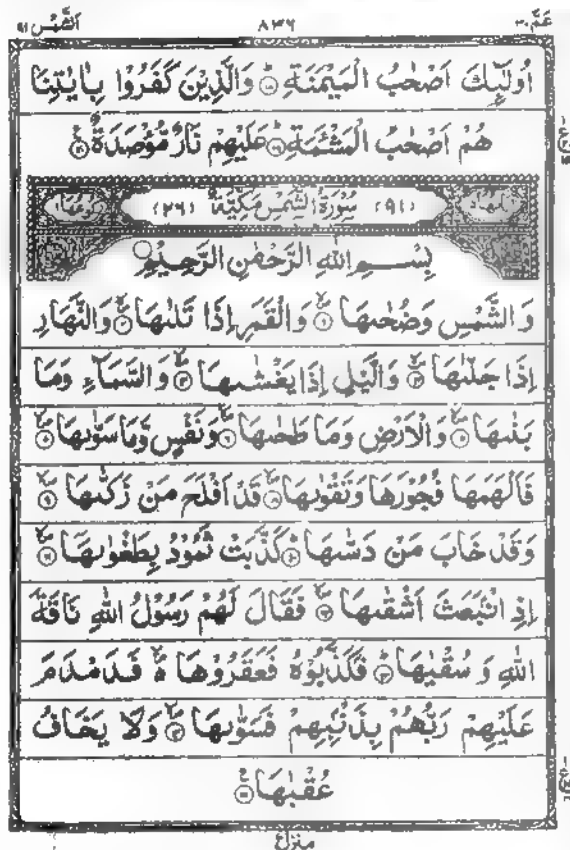 الشمس ٩١ ٨٣٦ عم ٣٠
اُولٰٓئِكَ اَصْحٰبُ الْمَيْمَنَةِ ۝١٨ وَالَّذِيْنَ كَفَرُوْا بِاٰيٰتِنَا
هُمْ اَصْحٰبُ الْمَشْـَٔمَةِ ۝١٩ عَلَيْهِمْ نَارٌ مُّؤْصَدَةٌ ۝٢٠
(٩١) سُوْرَةُ الشَّمْسِ مَكِّيَّةٌ (٢٦)
بِسْمِ اللّٰهِ الرَّحْمٰنِ الرَّحِيْمِ
وَالشَّمْسِ وَضُحٰىهَا ۝١ وَالْقَمَرِ اِذَا تَلٰىهَا ۝٢ وَالنَّهَارِ
اِذَا جَلّٰىهَا ۝٣ وَالَّيْلِ اِذَا يَغْشٰىهَا ۝٤ وَالسَّمَآءِ وَمَا
بَنٰىهَا ۝٥ وَالْاَرْضِ وَمَا طَحٰىهَا ۝٦ وَنَفْسٍ وَّمَا سَوّٰىهَا ۝٧
فَاَلْهَمَهَا فُجُوْرَهَا وَتَقْوٰىهَا ۝٨ قَدْ اَفْلَحَ مَنْ زَكّٰىهَا ۝٩
وَقَدْ خَابَ مَنْ دَسّٰىهَا ۝١٠ كَذَّبَتْ ثَمُوْدُ بِطَغْوٰىهَا ۝١١
اِذِ انْۢبَعَثَ اَشْقٰىهَا ۝١٢ فَقَالَ لَهُمْ رَسُوْلُ اللّٰهِ نَاقَةَ
اللّٰهِ وَسُقْيٰهَا ۝١٣ فَكَذَّبُوْهُ فَعَقَرُوْهَا ۙ۬ فَدَمْدَمَ
عَلَيْهِمْ رَبُّهُمْ بِذَنْۢبِهِمْ فَسَوّٰىهَا ۝١٤ وَلَا يَخَافُ
عُقْبٰهَا ۝١٥